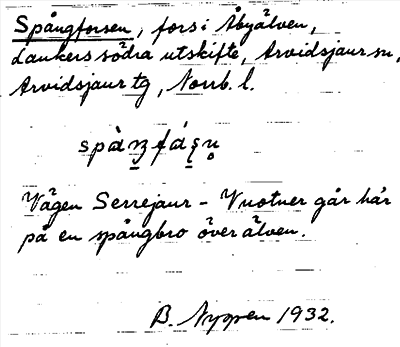 Spångforsen, fors i Åbyälven,
Laukers södra utskifte, Arvidsjaur sn,
Arvidsjaur tg, Norrb. l.
Vägen Serrejaur - Vuotner går här
på en spångbro över älven.
B. Nygren 1932.